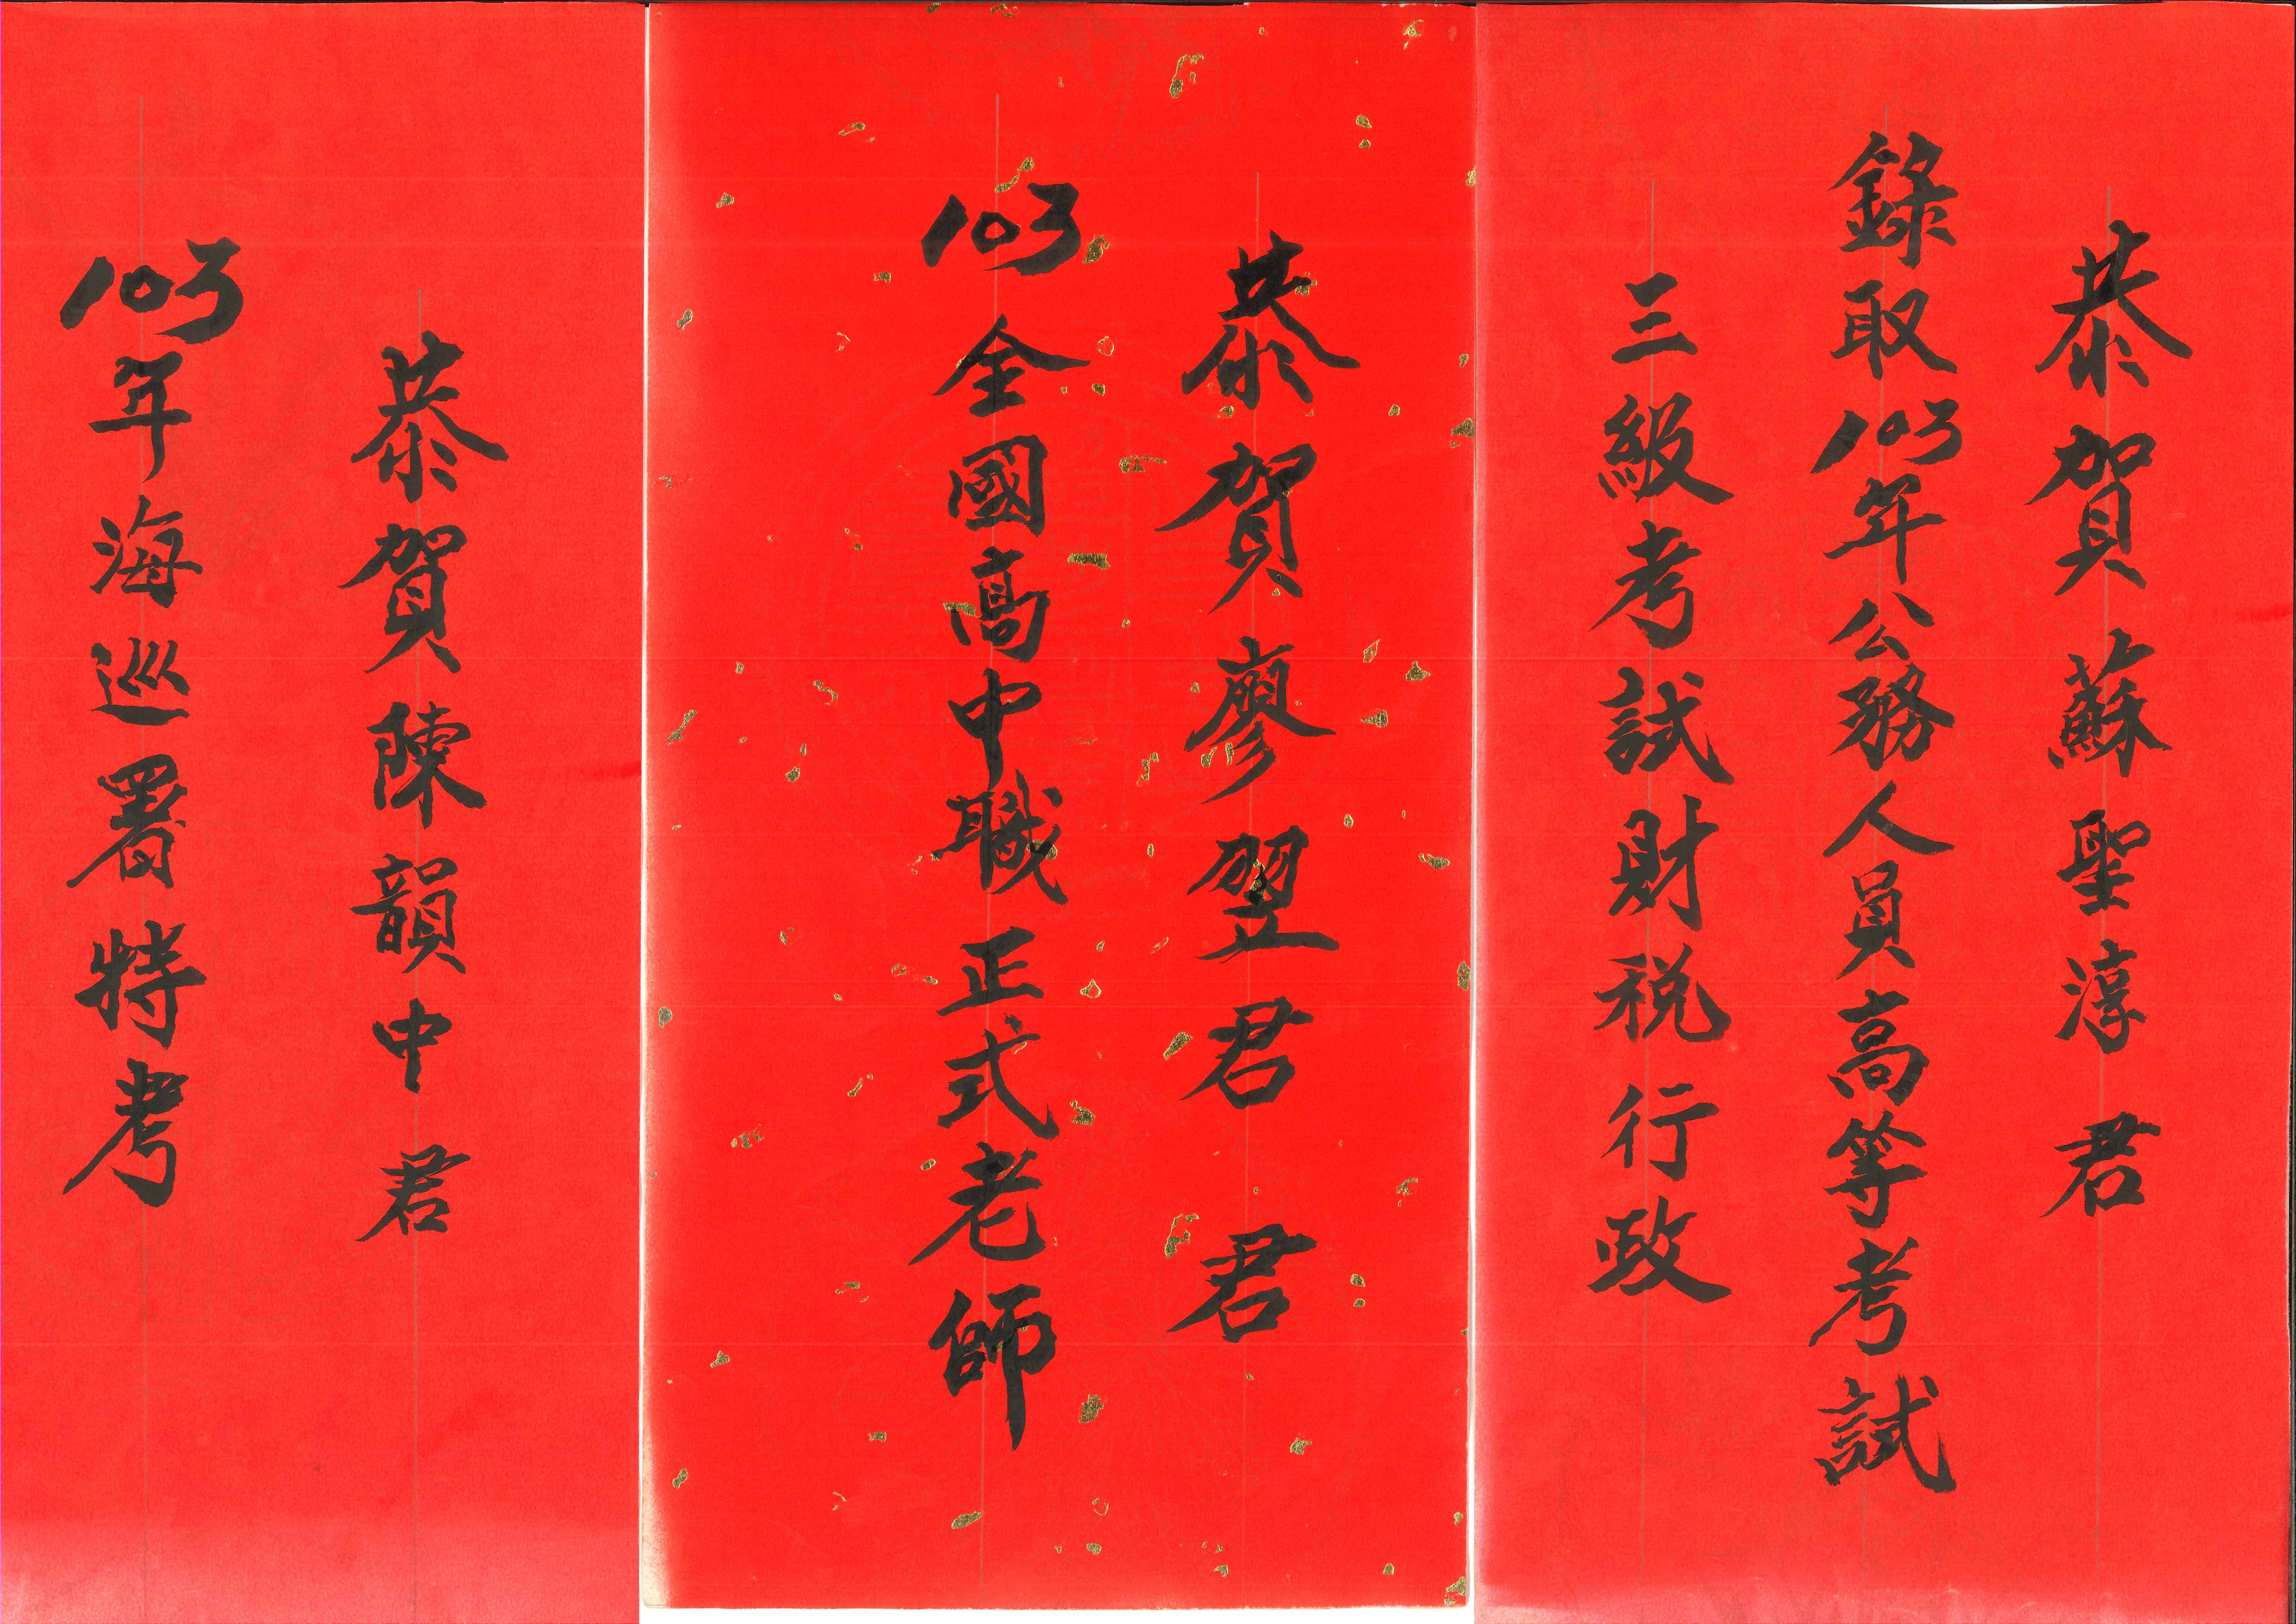 恭賀蘇聖淳君
錄取103年公務人員高等考試
三級考試財稅行政
恭賀廖翌君君
103全國高中職正式老師
恭賀陳韻中君
103年海巡署特考